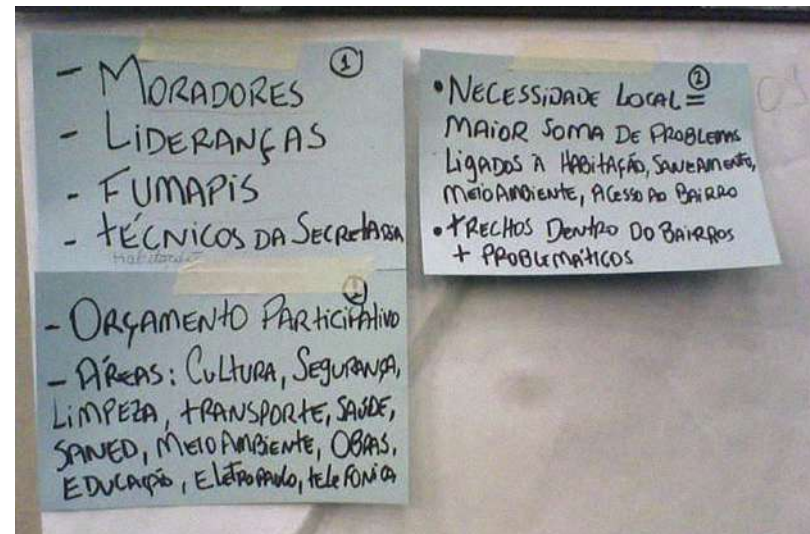 ①
- MORADORES
- LIDERANÇAS
- FUMAPIS
- TÉCNICOS DA SECRETARIA
Habitação
①
- ORÇAMENTO PARTICIPATIVO
- ÁREAS: CULTURA, SEGURANÇA,
LIMPEZA, TRANSPORTE, SAÚDE,
SANED, MEIO AMBIENTE, OBRAS,
EDUCAÇÃO, ELETROPAULO, TELEFONICA
②
• NECESSIDADE LOCAL =
MAIOR SOMA DE PROBLEMAS
LIGADOS À HABITAÇÃO, SANEAMENTO,
MEIO AMBIENTE, ACESSO AO BAIRRO
• TRECHOS DENTRO DO BAIRROS
+ PROBLEMÁTICOS